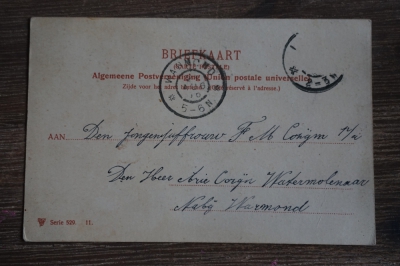 BRIEFKAART
Algemeene Postvereeniging (Union postale universelle)
Zijde voor het adres
réservé à l'adresse.)
5-6N
2-3N
AAN Den Jongenjuffrouw F M
Den Heer Arie Corijn Watermolenaar
Nabij Warmond
Serie 928 11.